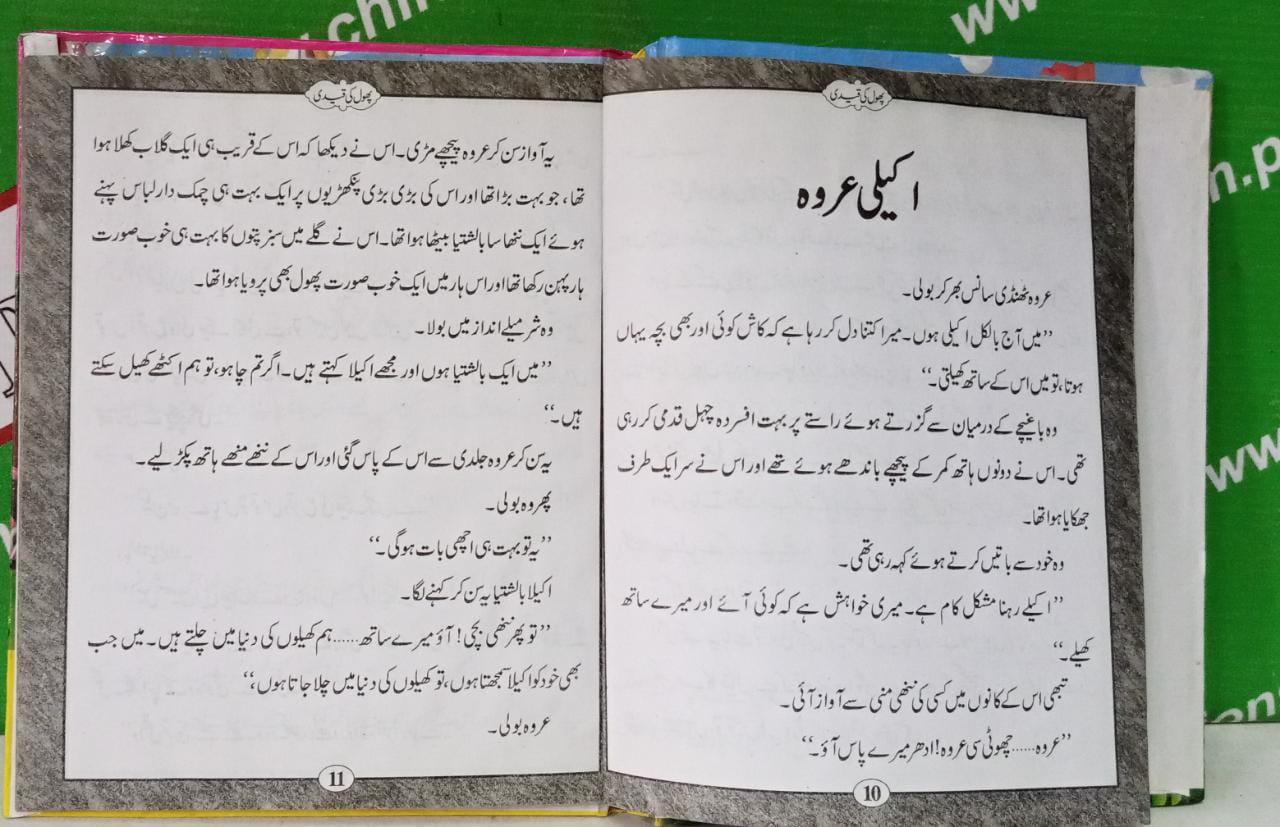 پھول کی قیدی
اکیلی عروہ
عروہ ٹھنڈی سانس بھر کر بولی۔
”میں آج بالکل اکیلی ہوں۔ میرا کتنا دل کر رہا ہے کہ کاش کوئی اور بھی بچہ یہاں
ہوتا، تو میں اس کے ساتھ کھیلتی۔“
وہ باغیچے کے درمیان سے گزرتے ہوئے راستے پر بہت افسردہ چہل قدمی کر رہی
تھی۔ اس نے دونوں ہاتھ کمر کے پیچھے باندھے ہوئے تھے اور اس نے سر ایک طرف
جھکایا ہوا تھا۔
وہ خود سے باتیں کرتے ہوئے کہہ رہی تھی۔
”اکیلے رہنا مشکل کام ہے۔ میری خواہش ہے کہ کوئی آئے اور میرے ساتھ
کھیلے۔“
تبھی اس کے کانوں میں کسی کی ننھی منی سے آواز آئی۔
”عروہ……چھوٹی سی عروہ! ادھر میرے پاس آؤ۔“
10
پھول کی قیدی
یہ آواز سن کر عروہ پیچھے مڑی۔ اس نے دیکھا کہ اس کے قریب ہی ایک گلاب کھلا ہوا
تھا، جو بہت بڑا تھا اور اس کی بڑی بڑی پنکھڑیوں پر ایک بہت ہی چمک دار لباس پہنے
ہوئے ایک ننھا سا بالشتیا بیٹھا ہوا تھا۔ اس نے گلے میں سبز پتوں کا بہت ہی خوب صورت
ہار پہن رکھا تھا اور اس ہار میں ایک خوب صورت پھول بھی پرویا ہوا تھا۔
وہ شرمیلے انداز میں بولا۔
”میں ایک بالشتیا ہوں اور مجھے اکیلا کہتے ہیں۔ اگر تم چاہو، تو ہم اکٹھے کھیل سکتے
ہیں۔“
یہ سن کر عروہ جلدی سے اس کے پاس گئی اور اس کے ننھے منھے ہاتھ پکڑ لیے۔
پھر وہ بولی۔
”یہ تو بہت ہی اچھی بات ہوگی۔“
اکیلا بالشتیا یہ سن کر کہنے لگا۔
”تو پھر ننھی بچی! آؤ میرے ساتھ……ہم کھیلوں کی دنیا میں چلتے ہیں۔ میں جب
بھی خود کو اکیلا سمجھتا ہوں، تو کھیلوں کی دنیا میں چلا جاتا ہوں،“
عروہ بولی۔
11